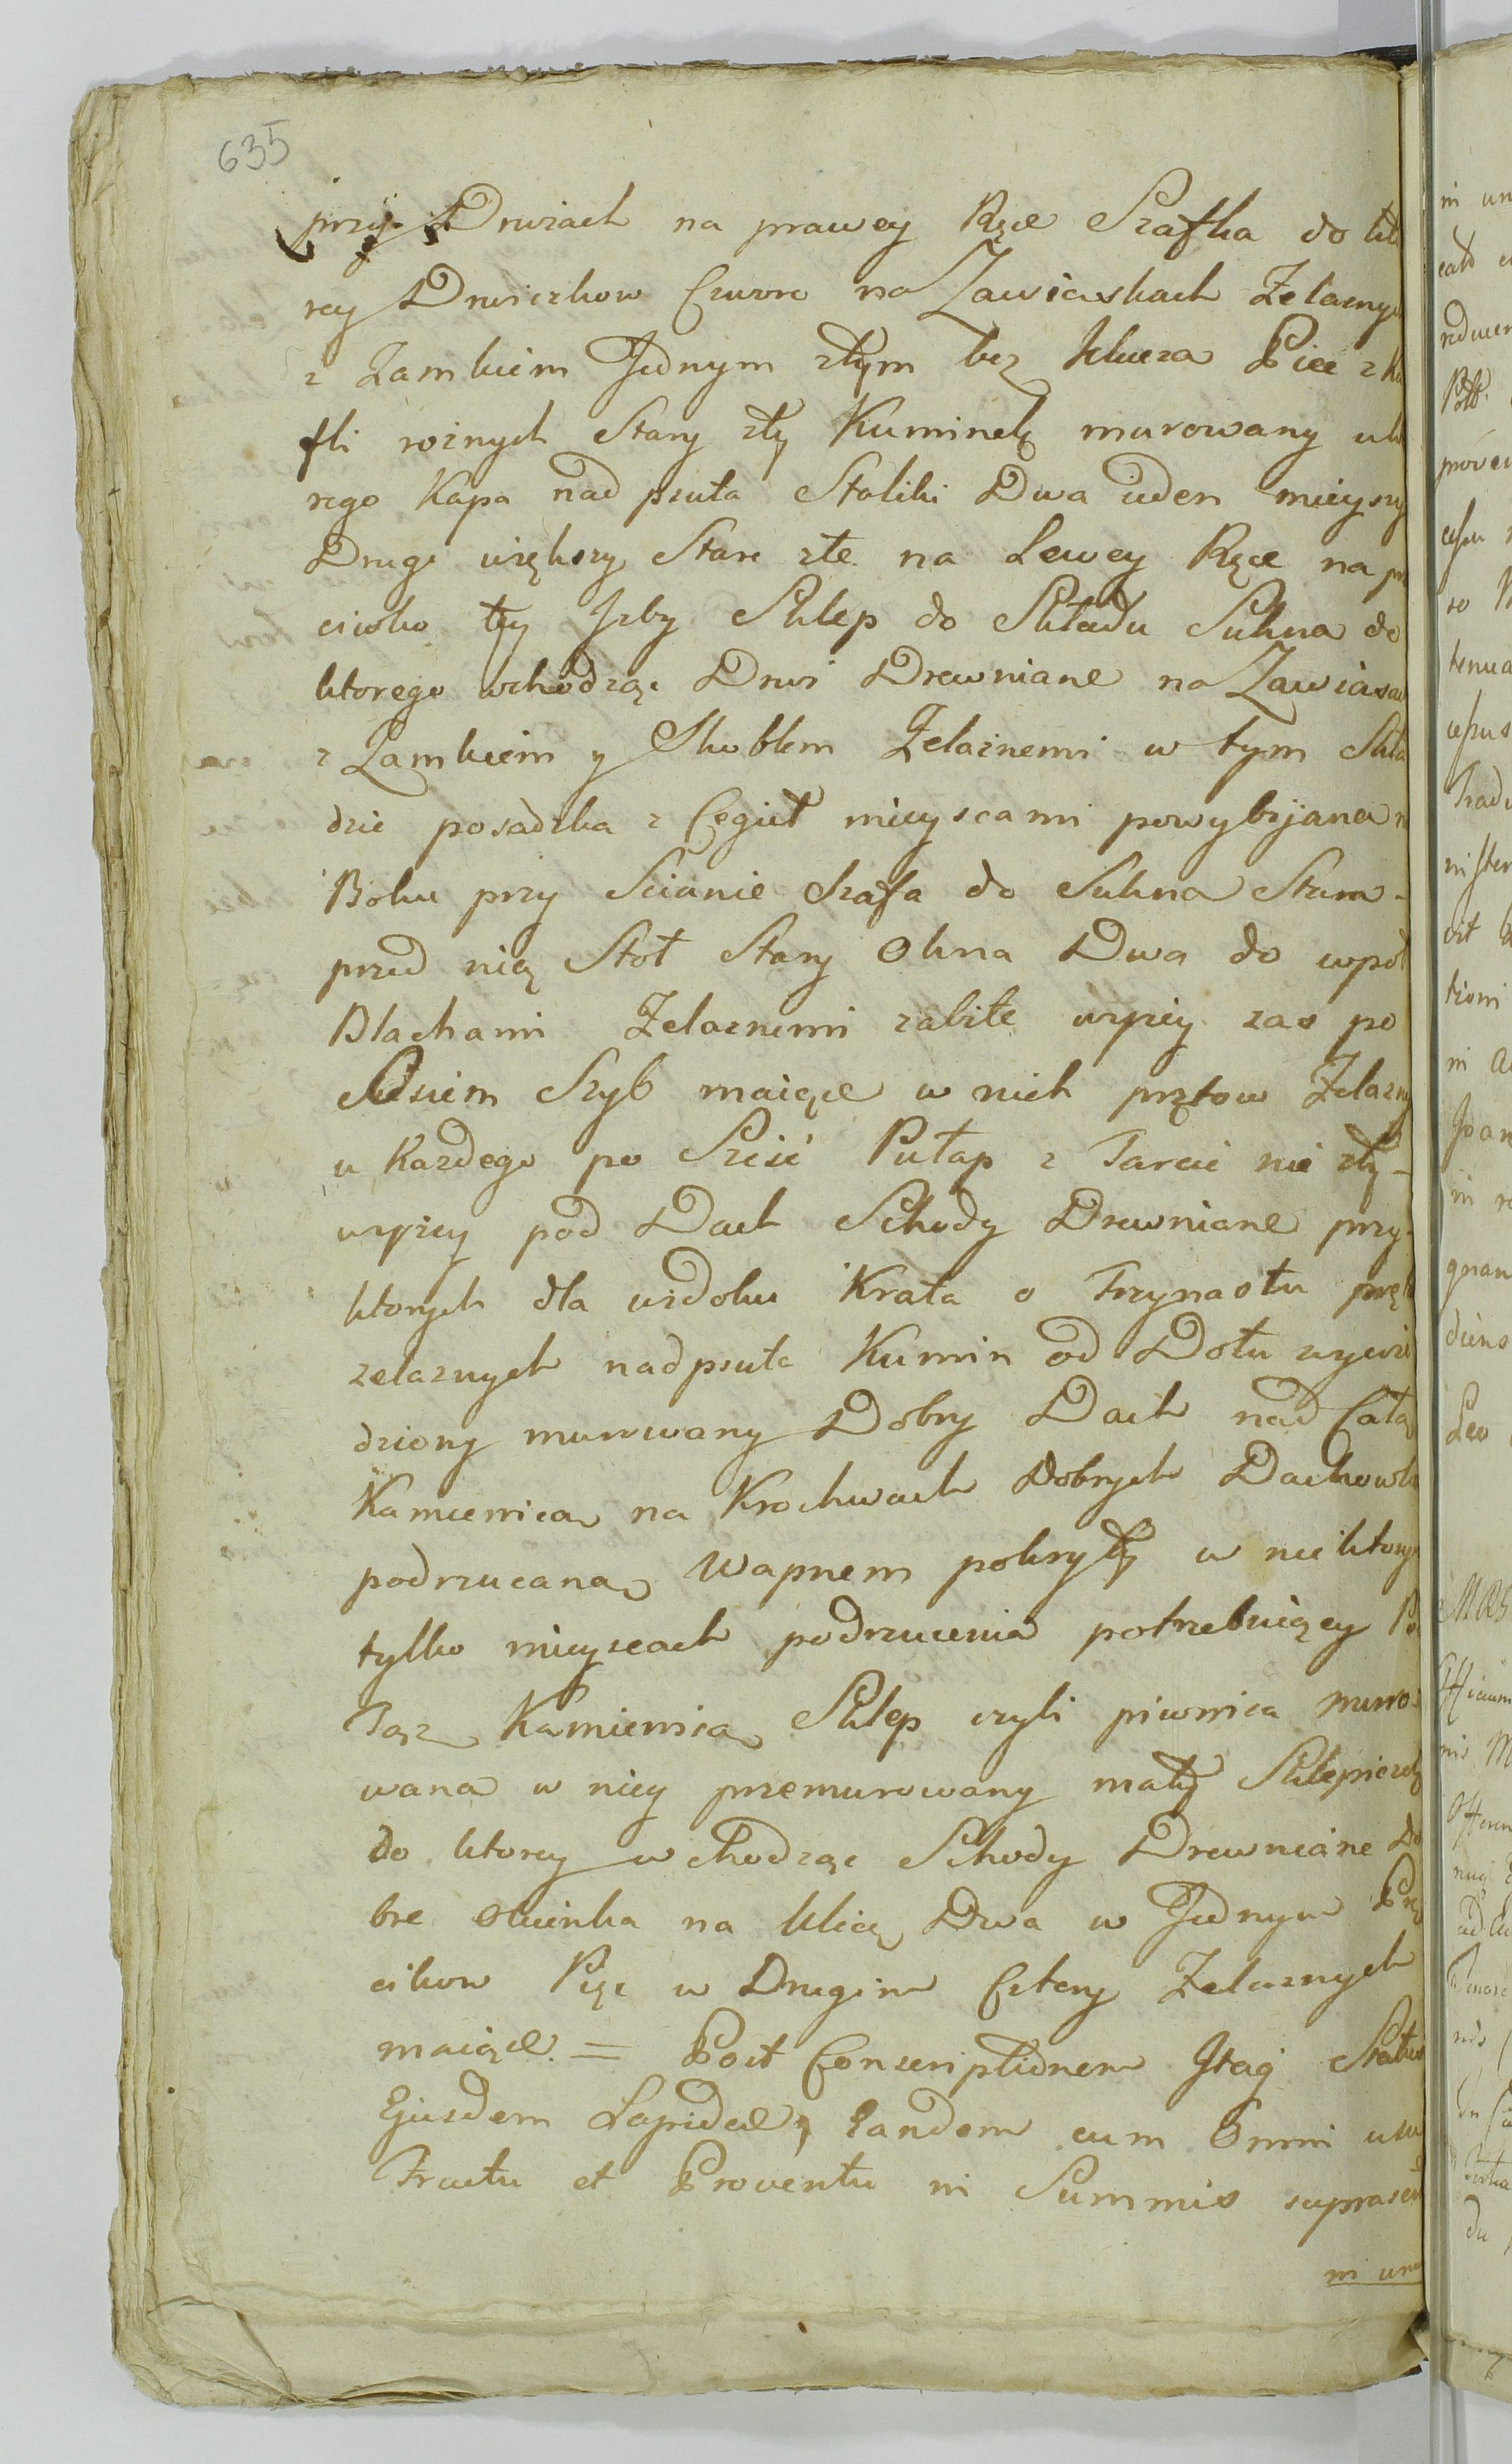 635
przy Drwiach na prawey Ręce Szafka do któ
rey Drwiczkow Czworo na Zawiaskach Zelaznyc
z Zamkiem Jednym złym bez klucza Piec z ka
fli roznych Stary zły Kuminek murowany u kto
rego Kapa nad psuta Stoliki Dwa ieden mieyszy
Drugi większy Stare złe na Lewey Ręce na prze
ciwko tey Jzby Sklep do Składu Sukna do
ktorego wchodząc Drwi Drewniane na Zawiasac
z Zamkiem y Skoblem Zelaznemi w tym Skła
dzie posadzka z Cegieł mieyscami powybijana
Boku przy Scianie Szafa do Sukna Stara
przed nią Stoł Stary Okna Dwa do wpoł
Blachami Zelaznemi zabite wyzey zas po
Osiem Szyb maiące w nich prętow Zelazny
u Kazdego po Sześć Pułap z Tarcic nie zły
wyzey pod Dach Schody Drewniane przy
ktorych dla widoku Krata o Trzynastu pręt
zelaznych nadpsuta Kumin od Dołu wywie
dziony murowany Dobry Dach nad Całą
Kamienicą na Krochwach Dobrych Dachowką
podrzucaną Wapnem pokryty w niektory
tylko mieyscach podrzucenia potrzebuiący Po
Tąz Kamienicą Sklep czyli piwnica muro
wana w niey przemurowany mały Sklepiczek
do ktorey wchodząc Schody Drewniane Do
bre Okienka na Ulicę Dwa w Jednym Prę
cikow Pięc w Drugim Cztery Zelaznych
maiące = Post Conscriptionem Itaq Status
Ejusdem Lapideæ, Eandem cum Omni usu
Fructu et Proventu in Summis suprascri
in una